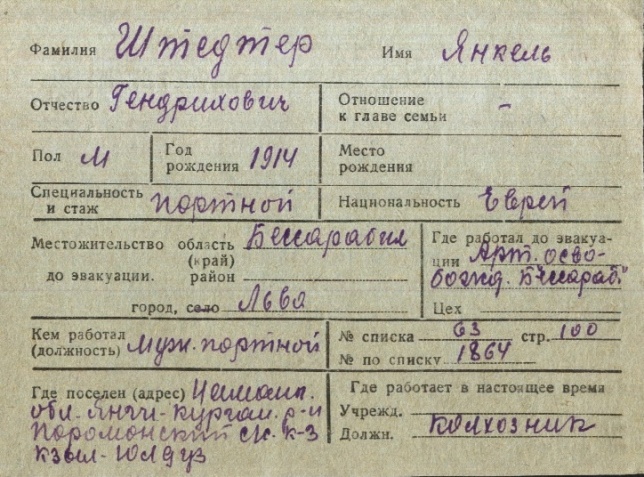 Фамилия Штедтер Имя Янкель
Отчество Гендрихович Отношение к главе семьи -
Пол М Год рождения 1914 Место рождения
Специальность и стаж портной Национальность Еврей
Местожительство область (край) Бессарабия
до эвакуации. район
город, село
Где работал до эвакуа-
ции Арт. осво-
божд. Бессараб"
Цех
Кем работал (должность) муж. портной
№ списка 63 стр. 100
№ по списку 1864
Где поселен (адрес) Наманг.
обл. Янги-Курган. р-н
с/с. к-з
Кзыл-Юлдуз
Где работает в настоящее время
Учрежд.
Должн. колхозник